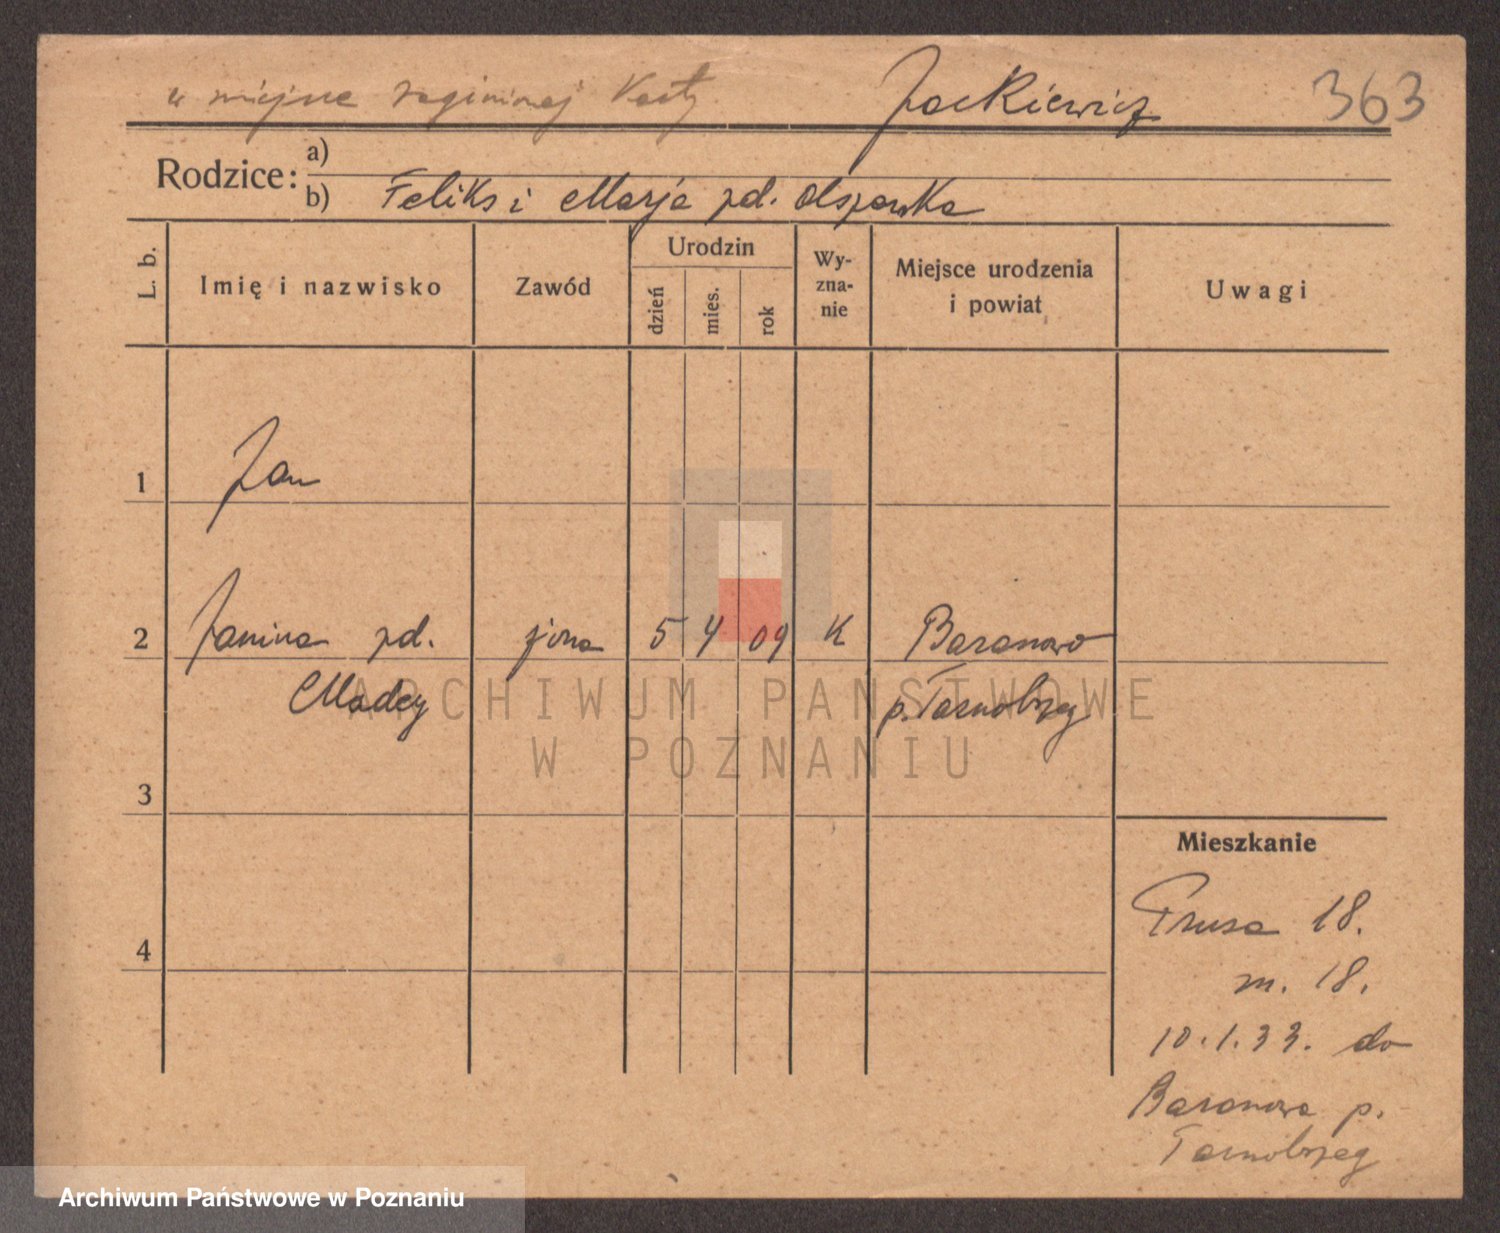 w miejsce zaginionej karty Jackiewicz 363
Rodzice: a)
b) Feliks i Marja zd. Olszewska
L. b. Imię i nazwisko Zawód Urodzin dzień mies. rok Wy-zna-nie Miejsce urodzenia i powiat Uwagi
1 Jan
2 Janina zd. żona 5 4 09 K Baranowo
Madey p. Tarnobrzeg
ARCHIWUM PAŃSTWOWE
W POZNANIU
3
Mieszkanie
Prusa 18.
4
m. 18.
10.1.33. do
Baranowa p.
Tarnobrzeg
Archiwum Państwowe w Poznaniu